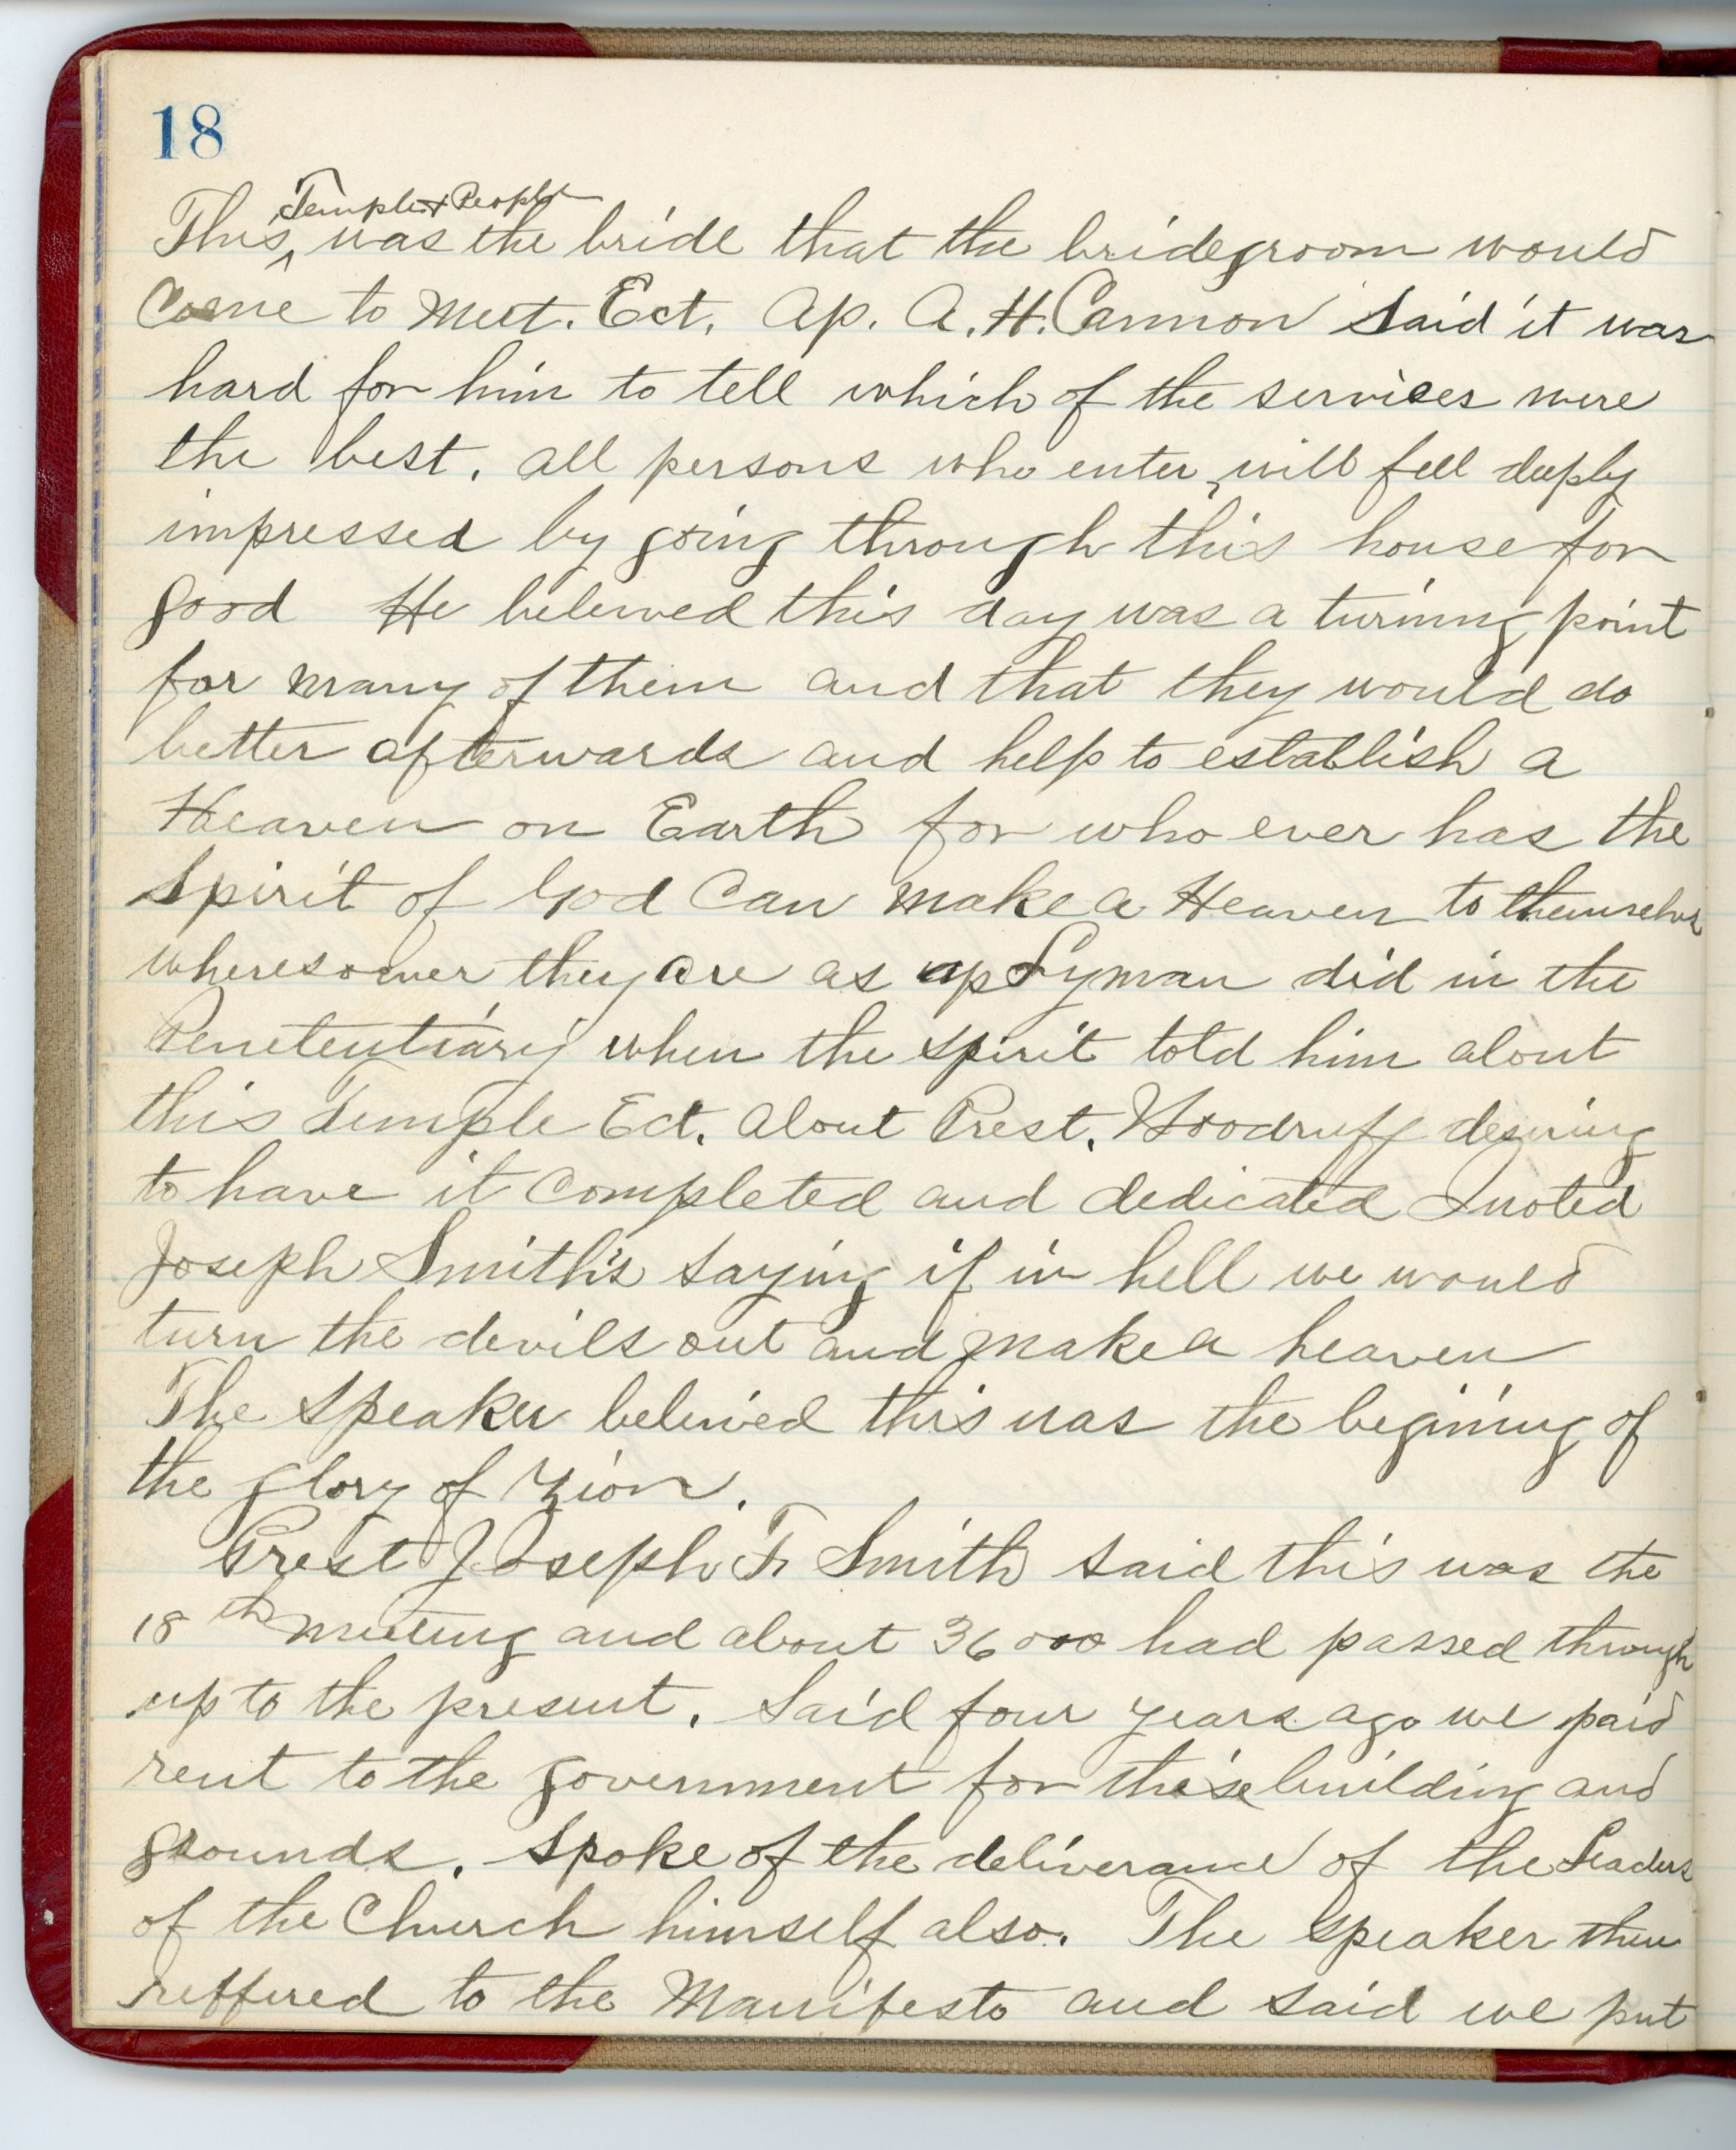 18
Temple & People
This was the bride that the bridegroom would
Come to Meet. Ect. Ap. A. H. Cannon Said it was
hard for him to tell which of the services were
the best. all persons who enter, will fell deeply
impressed by going through this house for
good He beleived this day was a turning point
for many of them and that they would do
better afterwards and help to establish a
Heaven on Earth for who ever has the
Spirit of God Can make a Heaven to themselves
wheresoever they are as ap Lyman did in the
Penetentiary when the spirit told him about
this Temple Ect. About Prest. Woodruff desiring
to have it Completed and dedicated Quoted
Joseph Smith's saying if in hell we would
turn the devils out and make a heaven
The Speaker beleived this was the begining of
the glory of Zion.
Prest Joseph F. Smith said this was the
18th meeting and about 36000 had passed through
up to the present. Said four years ago we paid
rent to the government for these building and
grounds. Spoke of the deliverance of the Leaders
of the Church himself also. The Speaker then
reffered to the Manifesto and said we put